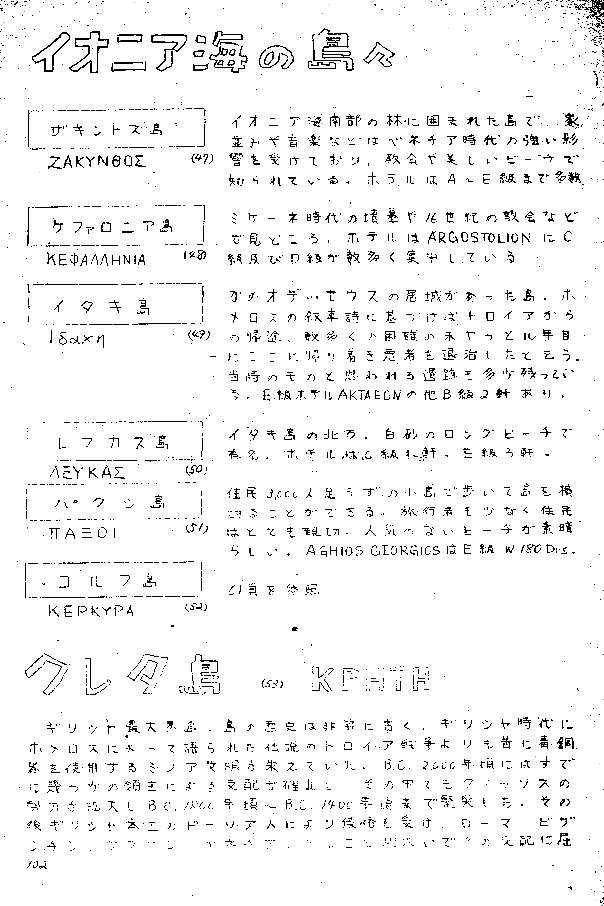 イオニア海の島々
ザキントス島
ΖΑΚΥΝΘΟΣ (47)
イオニア海南部の林に囲まれた島で、家
並みや音楽などはベネチア時代の強い影
響を受けており、教会や美しいビーチで
知られている。ホテルはA~E級まで多数
ケファロニア島
ΚΕΦΑΛΛΗΝΙΑ (48)
ミケーネ時代の墳墓や16世紀の教会など
で見どころ。ホテルはARGOSTOLIONにC
級及びD級が数多く集中している
イタキ島
Ιδακη (49)
かのオデッセウスの居城があった島。ホ
メロスの叙事詩に基づけばトロイアから
の帰途、数多くの困難の末やっと10年目
にここに帰り着き悪者を退治したと言う。
当時のものと思われる遺跡も多少残ってい
る。E級ホテルAKTAEONの他B級2軒あり。
レフカス島
ΛΕΥΚΑΣ (50)
イタキ島の北方。白砂のロングビーチで
有名。ホテルは E級 軒。
パクシ島
ΠΑΞΟΙ (51)
住民3,000人足らずの小島で歩いて島を横
切ることができる。旅行者も少なく住民
はとても親切。人気のないビーチが素晴
らしい。AGHIOS GEORGIOSはE級W180Drs.
コルフ島
ΚΕΡΚΥΡΑ (52)
頁を参照
クレタ島 (53) ΚΡΗΤΗ
ギリシャ最大の島。島の歴史は非常に古く、ギリシャ時代に
ホメロスによって語られた伝説のトロイア戦争よりも昔に青銅
器を使用するミノア文明が栄えていた。B.C. 2,000年頃にはすで
に幾つかの領主による支配が確立し、その中でもクノッソスの
勢力が拡大しB.C. 年頃~B.C. 1400年頃まで繁栄した。その
後ギリシャ本土のドーリア人により侵略を受け、ローマ、ビザ
の支配に屈
102